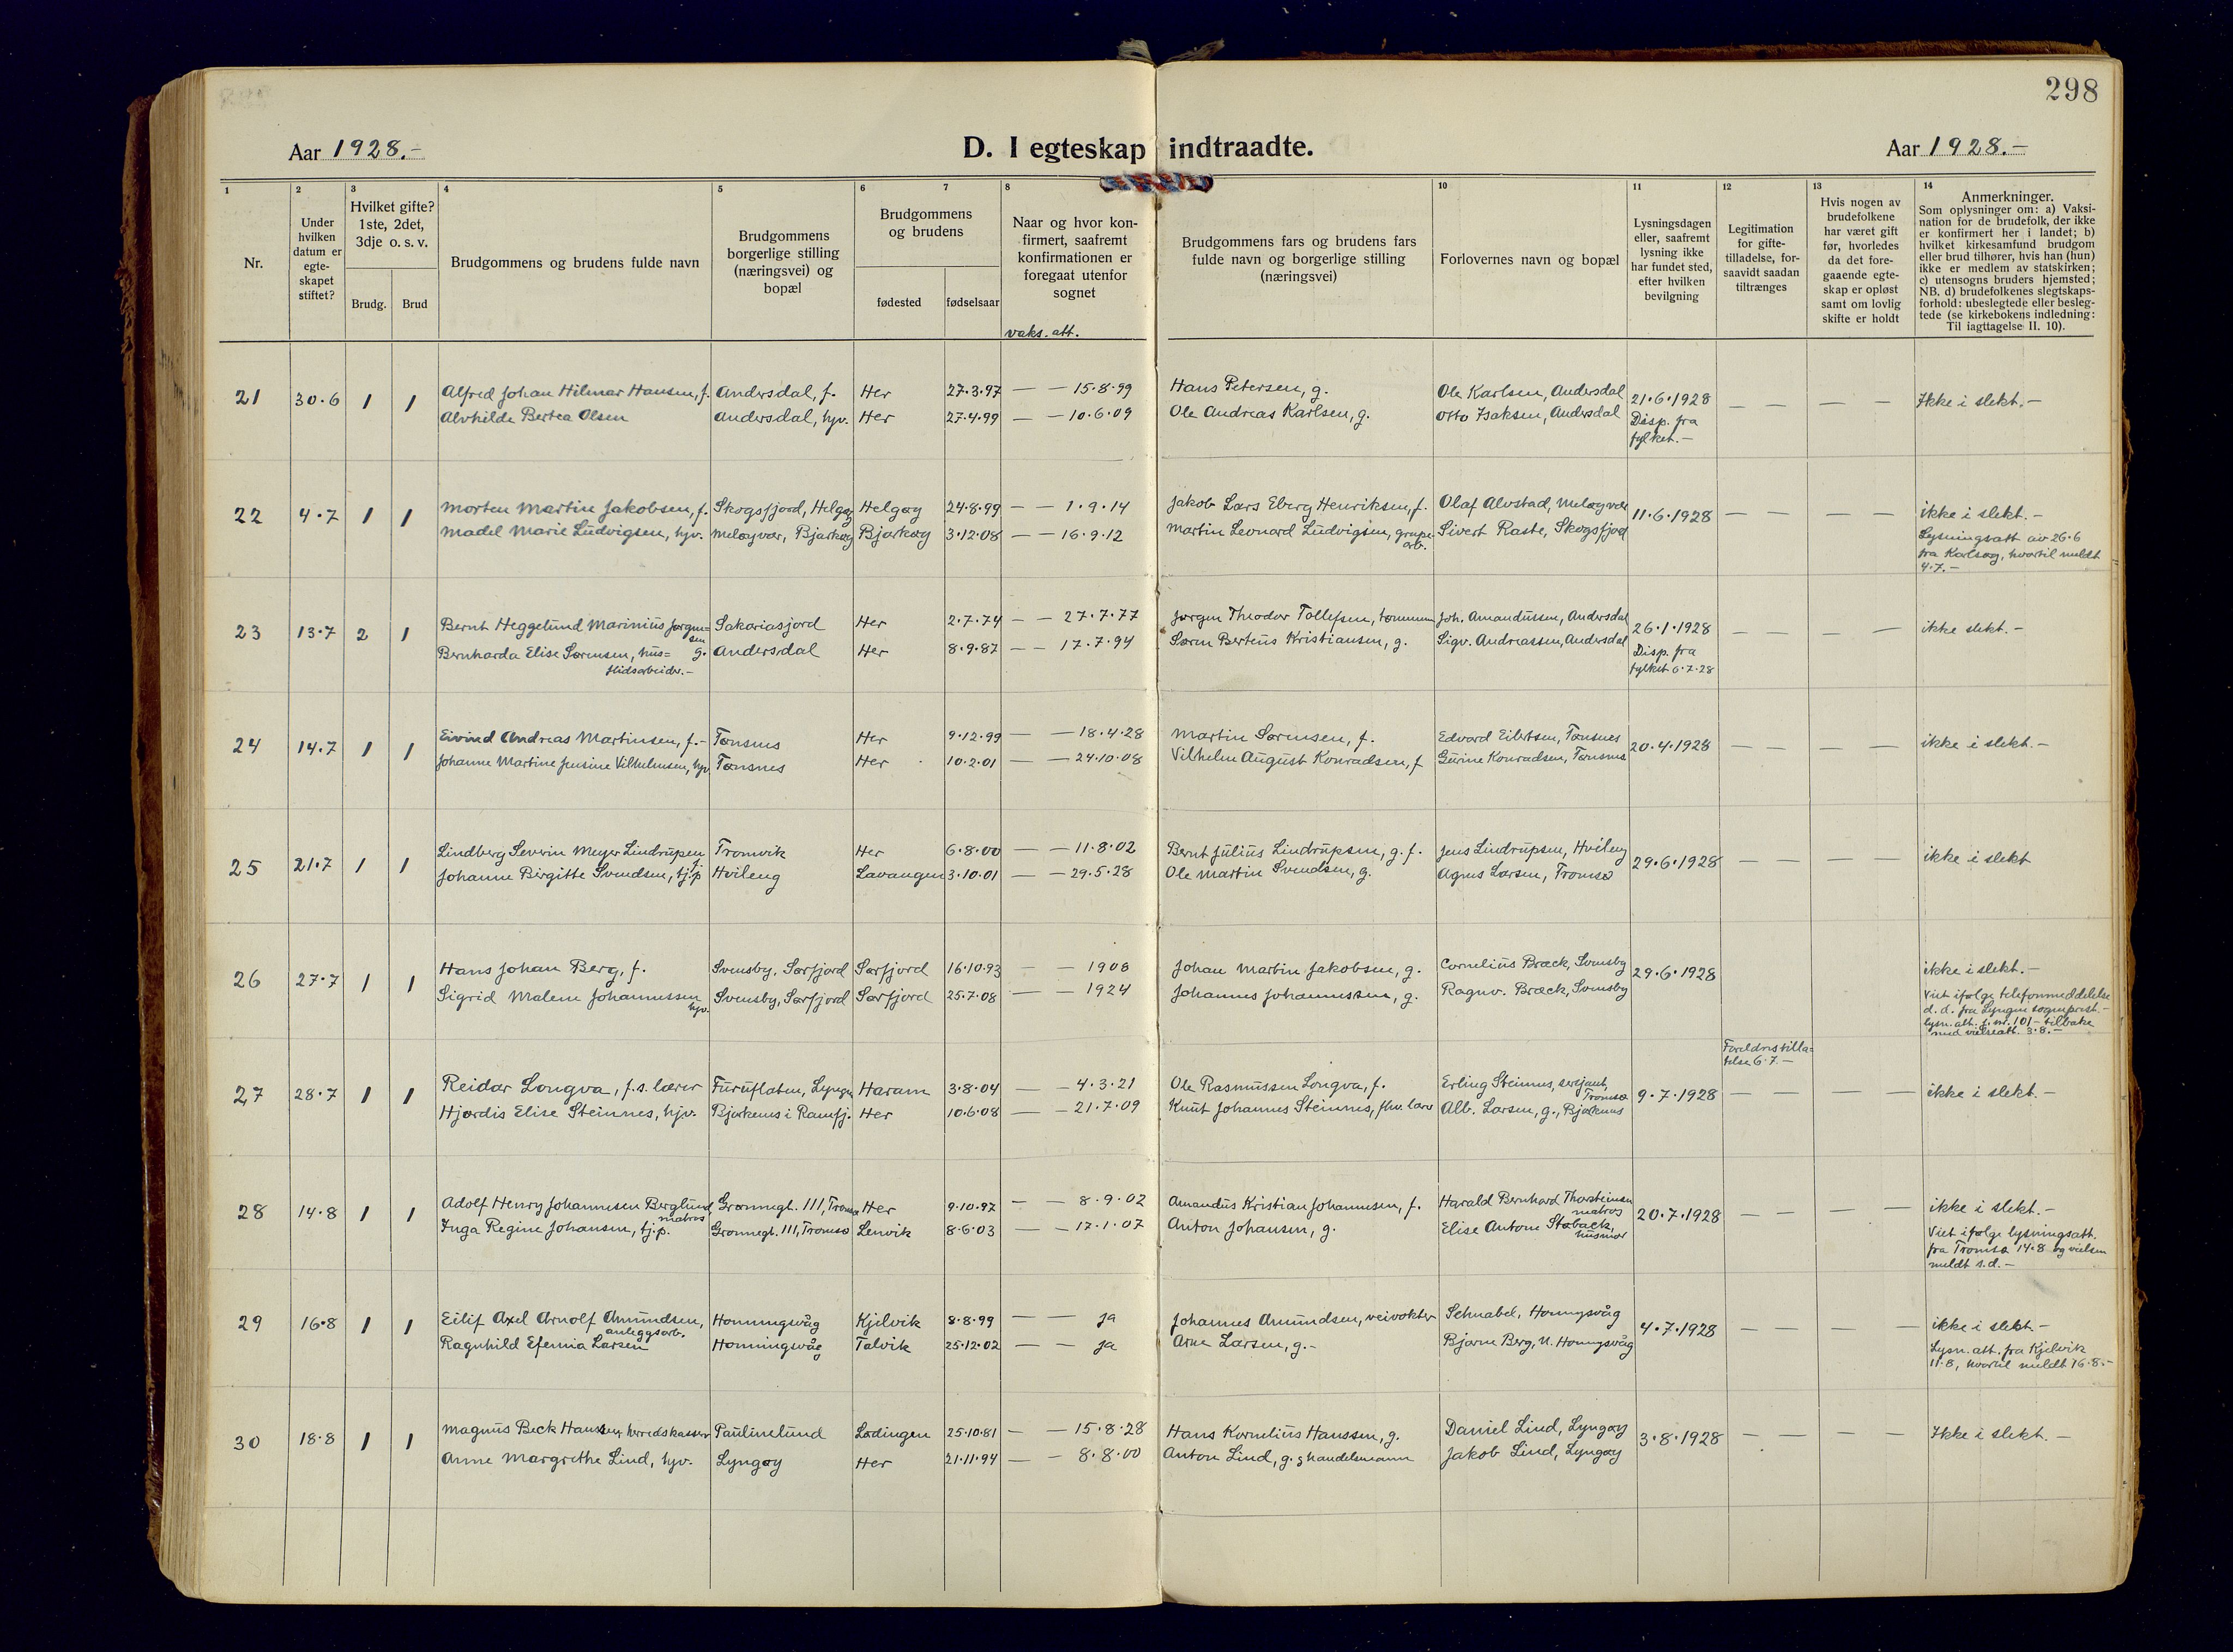 298
Aar 1928.-
D. I egteskap indtraadte.
Aar 1928.-
1
2
3
4
5
6
7
8
10
11
12
13
14
Nr.
Under hvilken datum er egte-skapet stiftet?
Hvilket gifte? 1ste, 2det, 3dje o. s. v.
Brudg.
Brud
Brudgommens og brudens fulde navn
Brudgommens borgerlige stilling (næringsvei) og bopæl
Brudgommens og brudens
fødested
fødselsaar
Naar og hvor kon-firmert, saafremt konfirmationen er foregaat utenfor sognet
vaks. att.
Brudgommens fars og brudens fars fulde navn og borgerlige stilling (næringsvei)
Forlovernes navn og bopæl
Lysningsdagen eller, saafremt lysning ikke har fundet sted, efter hvilken bevilgning
Legitimation for gifte-tilladelse, for-saavidt saadan tiltrænges
Hvis nogen av brudefolkene har været gift før, hvorledes da det fore-gaaende egte-skap er opløst samt om lovlig skifte er holdt
Anmerkninger.
Som oplysninger om: a) Vaksi-nation for de brudefolk, der ikke er konfirmert her i landet; b) hvilket kirkesamfund brudgom eller brud tilhører, hvis han (hun) ikke er medlem av statskirken; c) utensogns bruders hjemsted; NB. d) brudefolkenes slegtskaps-forhold: ubeslegtede eller besleg-tede (se kirkebokens indledning: Til iagttagelse II. 10).
21 30.6 1 1 Alfred Johan Hilmar Hansen, f. Andersdal, f. Her 27.3.97 — — 15.8.99 Hans Petersen, g. Ole Karlsen, Andersdal 21.6.1928 — — — — Ikke i slekt.-
Alvhilde Bertea Olsen Andersdal, hjv. Her 27.4.99 — — 10.6.09 Ole Andreas Karlsen, g. Otto Isaksen, Andersdal Disp. fra
fylket.-
22 4.7 1 1 Morten Martin Jakobsen, f. Skogsfjord, Helgøy Helgøy 24.8.99 — — 1.9.14 Jakob Lars Eberg Henriksen, f. Olaf Alvstad, Meløyvær 11.6.1928 — — — — ikke i slekt.-
Madel Marie Ludvigsen, hjv. Meløyvær, Bjarkøy Bjarkøy 3.12.08 — — 16.9.12 Martin Leonard Ludvigsen, grube- Sivert Raste, Skogsfjord Lysningsatt av 26.6
arb. fra Karlsøy, hvortil meldt
4.7.-
23 13.7 2 1 Bernt Heggelund Marinius Jørgen= Sakariasjord Her 2.7.74 — — 27.7.77 Jørgen Theodor Tollefsen, tømmerm Joh. Amandussen, Andersdal 26.1.1928 — — — — ikke slekt.-
sen
Bernharda Elise Sørensen, hus= g. Andersdal Her 8.9.87 — — 17.7.94 Søren Berteus Kristiansen, g. Sigv. Andreassen, Andersdal Disp. fra
flidsarbeider.- fylket 6.7.28
24 14.7 1 1 Eivind Andreas Martinsen, f.- Tønsnes Her 9.12.99 — — 18.4.28 Martin Sørensen, f. Edvard Eilertsen, Tønsnes 20.4.1928 — — — — ikke i slekt.-
Johanne Martine Jensine Vilhelmsen, hjv Tønsnes Her 10.2.01 — — 24.10.08 Vilhelm August Konradsen, f Gurine Konradsen, Tønsnes
25 21.7 1 1 Lindberg Severin Meyer Lindrupsen f. Tromvik Her 6.8.00 — — 11.8.02 Bernt Julius Lindrupsen, g. f. Jens Lindrupsen, Hvileng 29.6.1928 — — — — ikke i slekt
Johanne Birgitte Svendsen, tj.p Hvileng Lavangen 3.10.01 — — 29.5.28 Ole Martin Svendsen, g. Agnes Larsen, Tromsø
26 27.7 1 1 Hans Johan Berg, f. Svensby, Sørfjord Sørfjord 16.10.93 — — 1908 Johan Martin Jakobsen, g. Cornelius Bræck, Svensby 29.6.1928 ikke i slekt.-
Sigrid Malene Johannessen hjv. Svensby, Sørfjord Sørfjord 25.7.08 — — 1924 Johannes Johannessen, g. Ragnv. Bræck, Svensby Viet ifølge telefonmeddelelse
d. d. fra Lyngen sogneprest.-
lysn. att. j. nr. 101 - tilbake
med vielseatt. 3.8.-
Foreldres tilla=
telse 6.7.-
27 28.7 1 1 Reidar Longva, f.s. lærer Furuflaten, Lyngen Haram 3.8.04 — — 4.3.21 Ole Rasmussen Longva, f. Erling Steinnes, sersjant, Tromsø 9.7.1928 — — — — ikke i slekt.-
Hjørdis Elise Steinnes, hjv. Bjørkenes i Ramfj. Her 10.6.08 — — 21.7.09 Knut Johannes Steinnes, fhv. lærer Alb. Larsen, g., Bjørkenes
28 14.8 1 1 Adolf Henry Johannesen Berglund, matros Grønnegt. 111, Tromsø Her 9.10.97 — — 8.9.02 Amandus Kristian Johannesen, f. Harald Bernhard Thorsteinsen matros 20.7.1928 — — — — ikke i slekt.-
Inga Regine Johansen, tj.p. Grønnegt. 111, Tromsø Lenvik 8.6.03 — — 17.1.07 Anton Johansen, g. Elise Antonie Støback, husmor Viet ifølge lysningsatt.
fra Tromsø 14.8 og vielsen
meldt s.d.-
29 16.8 1 1 Eilif Axel Arnolf Amundsen, anleggsarb. Honningsvåg Kjelvik 8.8.99 — — ja Johannes Amundsen, veivokter Schnabel, Honningsvåg 4.7.1928 — — — — ikke i slekt.-
Ragnhild Efemia Larsen Honningsvåg Talvik 25.12.02 — — ja Arne Larsen, g.- Bjarne Berg, N. Honningsvåg Lysn. att. fra Kjelvik
11.8, hvortil meldt 16.8.-
30 18.8 1 1 Magnus Beck Hanssen, herredskasserer Paulinelund Lødingen 25.10.81 — — 15.8.28 Hans Kornelius Hanssen, g. Daniel Lind, Lyngøy 3.8.1928 — — — — Ikke i slekt.-
Anne Margrethe Lind, hjv. Lyngøy Her 21.11.94 — — 8.8.00 Anton Lind, g. & handelsmann Jakob Lind, Lyngøy